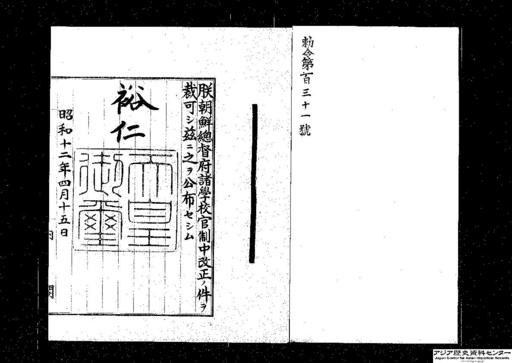 勅令第百三十一號
朕朝鮮總督府諸學校官制中改正ノ件ヲ
裁可シ茲ニ之ヲ公布セシム
裕仁
天皇
御璽
昭和十二年四月十五日
アジア歴史資料センター
Japan Center for Asian Historical Records